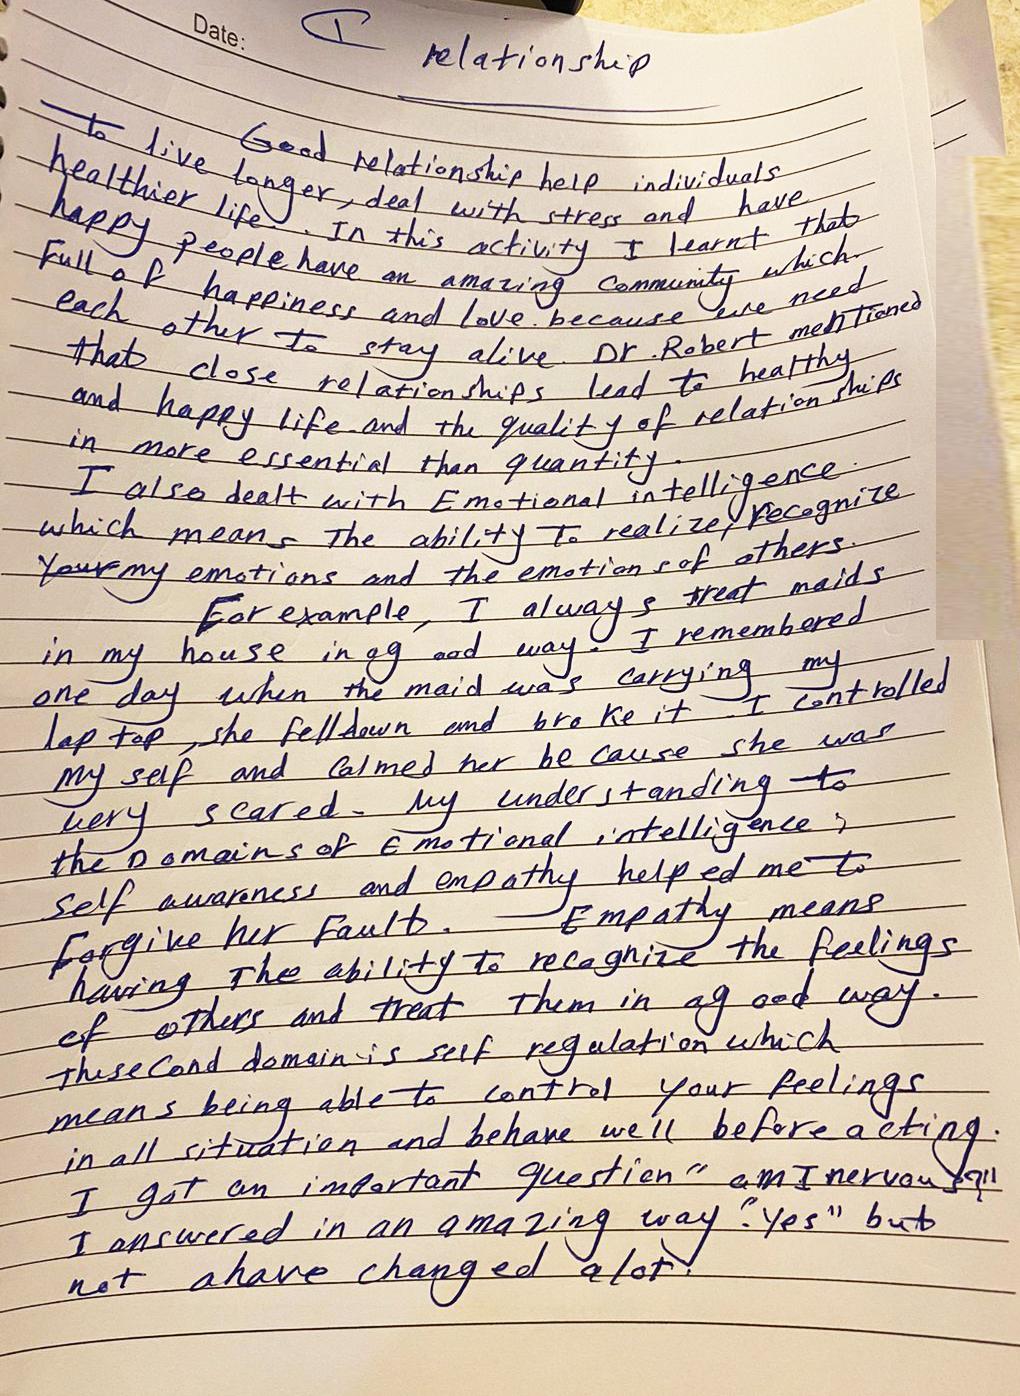 Date: I
relationship
Good relationship help individuals
to live longer, deal with stress and have
healthier life. In this activity I learnt that
happy people have an amazing community which
Full of happiness and love because we need
each other to stay alive. Dr. Robert mentioned
that close relationships lead to healthy
and happy life and the quality of relationships
in more essential than quantity.
I also dealt with Emotional intelligence.
which means The ability To realize, recognize
my emotions and the emotions of others.
For example, I always treat maids
in my house in ag ood way. I remembered
one day when the maid was carrying my
lap top, she felldown and bro ke it. I controlled
my self and Calmed her be cause she was
very scared. My understanding to
the Domains of Emotional intelligence;
self awareness and empathy help ed me to
Forgive her Fault. Empathy means
having The ability to recognize the feelings
of others and treat Them in ag ood way.
the second domain is self regulation which
means being able to control your feelings
in all situation and behave well before acting.
I got an important question " am I nervous?"
I answered in an amazing way "Yes" but
not ahave changed alot.